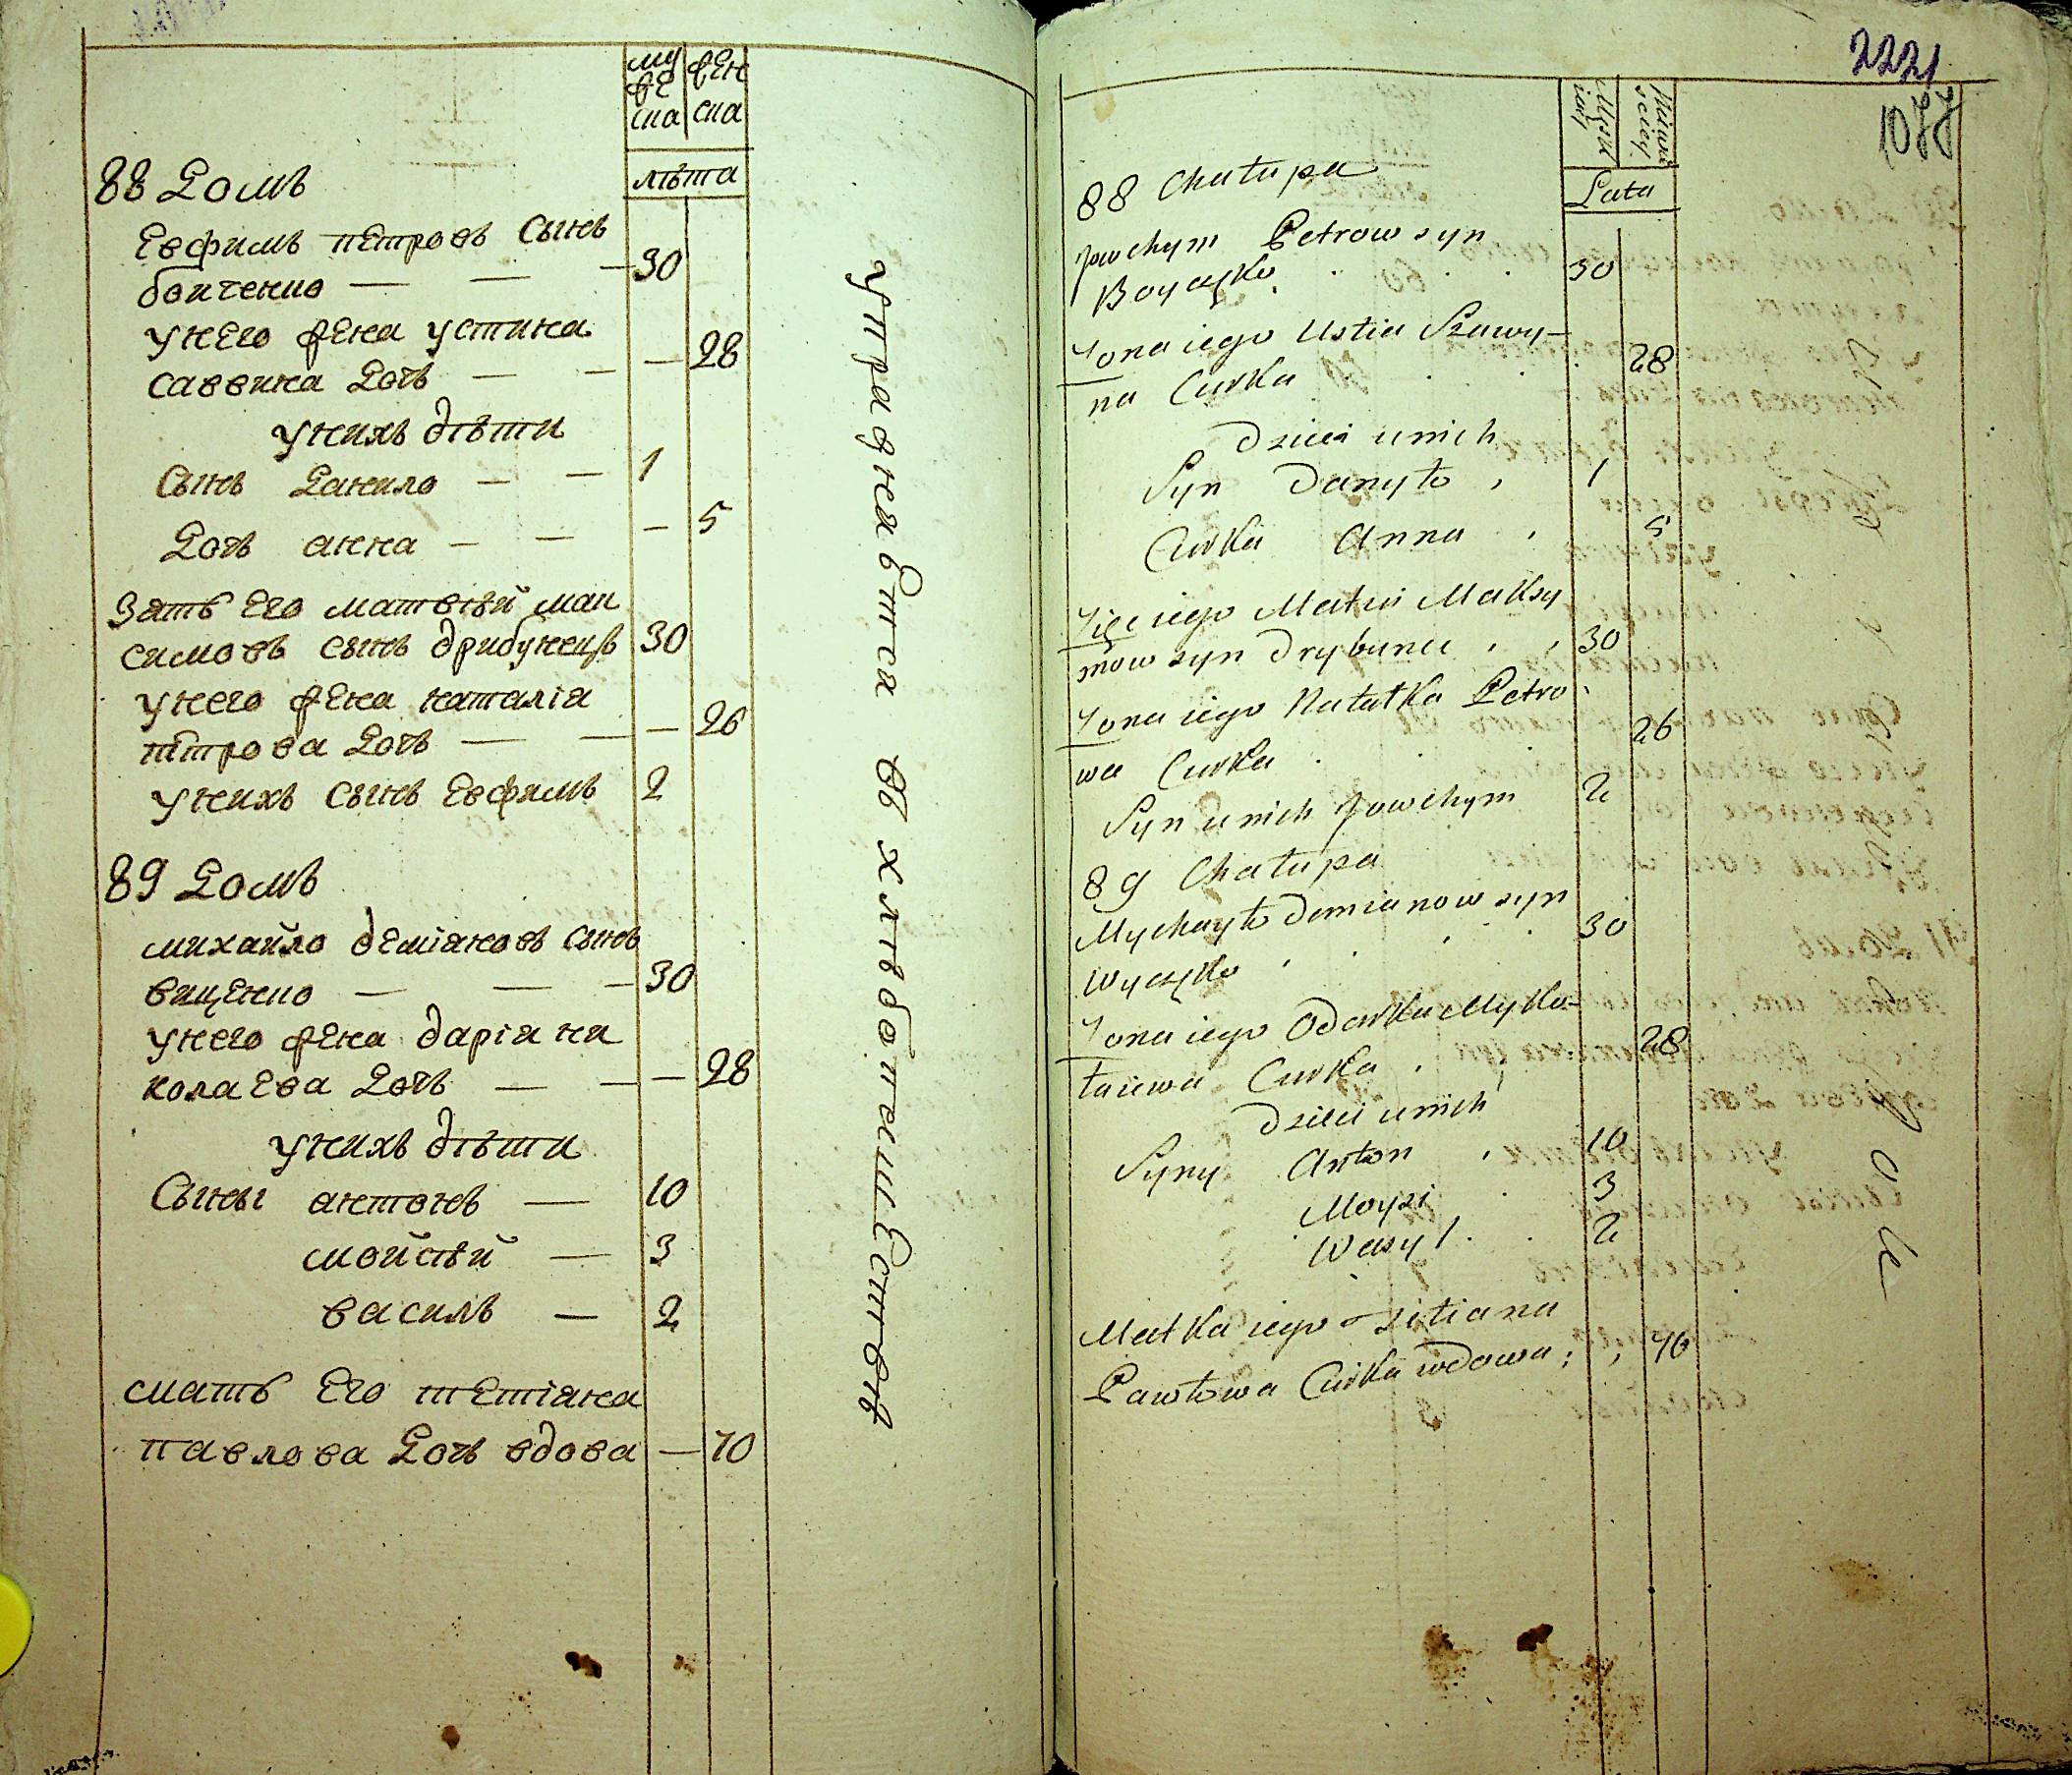 му
же
ска
жен
ска
лѣта
88 Домъ
Евфимъ петровъ сынъ
боиченко — — — 30
унего жена устина
саввина дочь — — — 28
унихъ дѣти
Сынъ Данило — — 1
Дочь анна — — — 5
Зять Его матвѣй мак
симовъ сынъ дрибунецъ 30
унего жена наталіа
петрова Дочь — — — 26
унихъ сынъ Евфимъ 2
89 Домъ
михайло деміановъ сынъ
виценко — — — 30
унего жена даріа ни
колаева Дочь — — — 28
унихъ дѣти
Сыны антонъ — 10
мойсѣй — 3
василь — 2
мать Его тетіана
павлова Дочь вдова — 70
упражнаются въ хлѣбопашествѣ
2221
1077
Męsk
iey
Niewie
sciey
Lata
88 Chałupa
Jowchym Petrow syn
Boyczko . . . 30
Żona iego Ustia Sauwy-
na Curka . . . 28
Dzieci unich
Syn Danyło , 1
Curka Anna , 5
Zięć iego Matwi Maksy
mow syn Drybune , , 30
Żona iego Natałka Petro
wa Curka . . 26
Syn unich Jowchym 2
89 Chałupa
Mychayło Demianow syn
Wyczko . . . . 30
Żona iego Odarka Myko-
łaiewa Curka . , 28
Dzieci unich
Syny Anton , 10
Moysi . 3
Wasyl . . 2
Matka iego
Pawłowa Curka wdowa ; , 70